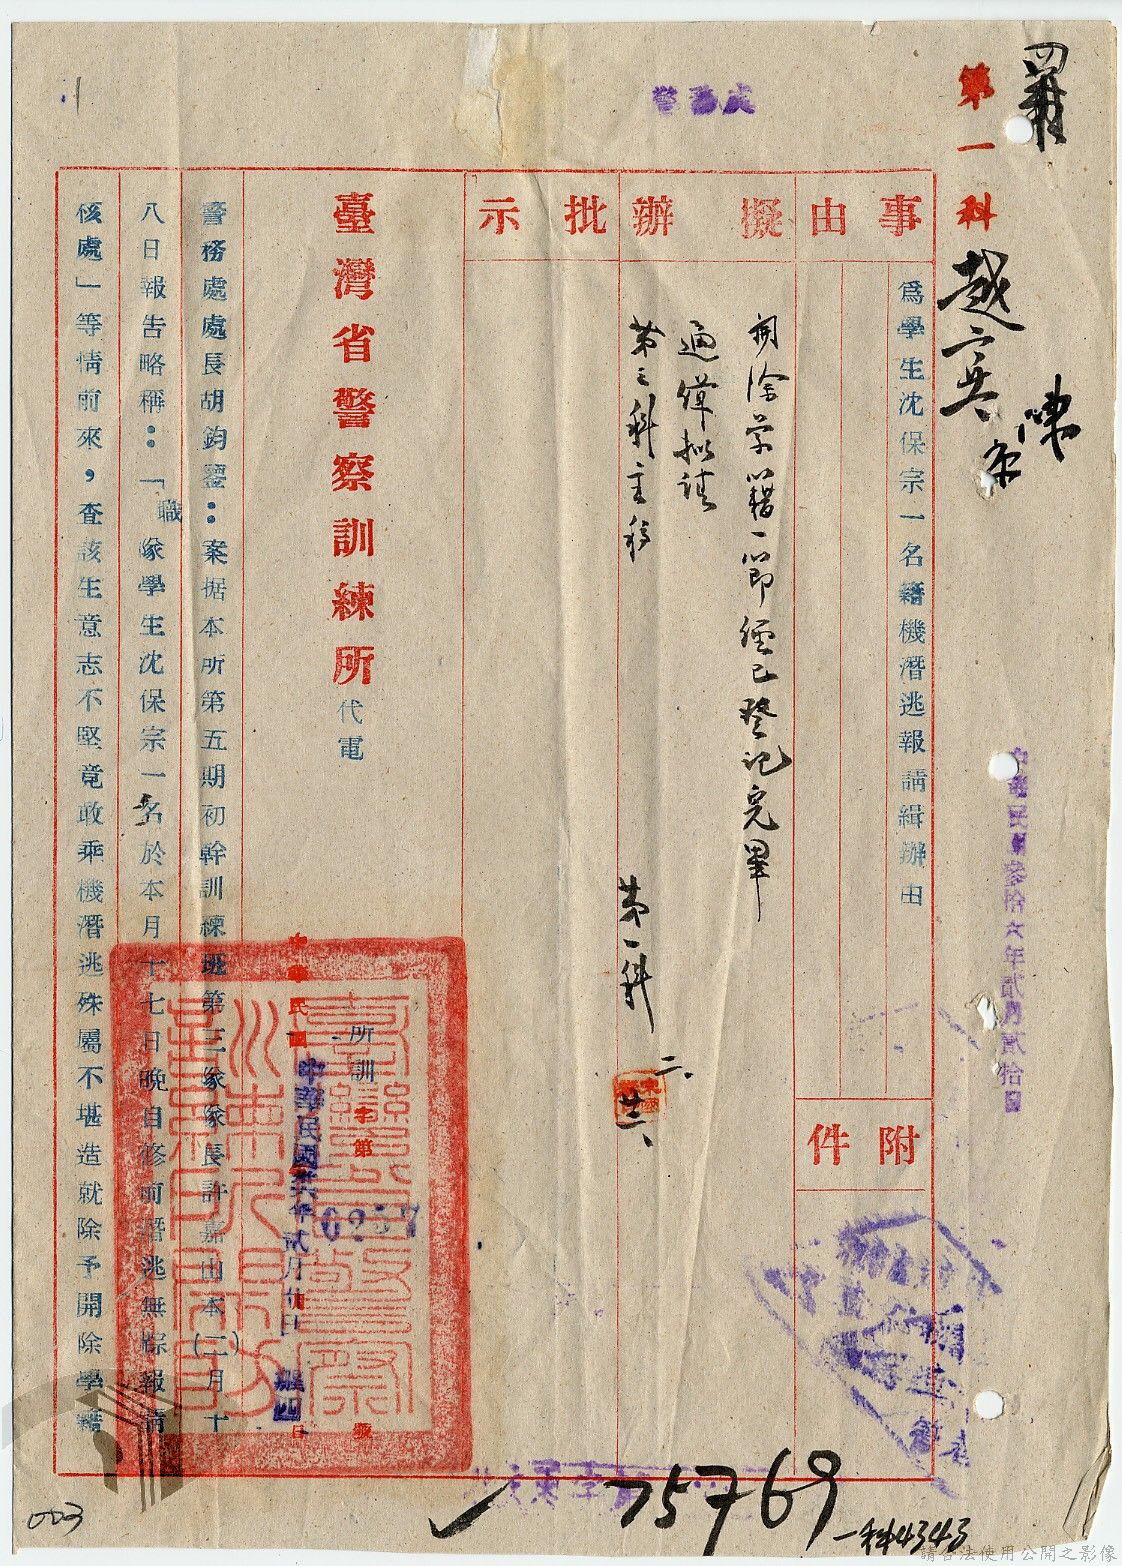 第一科
警務處
事由
擬辦
批示
附件
為學生沈保宗一名藉機潛逃報請緝辦由
開除學籍一節經已登記完畢
通緝擬請
第三科主稿
第一科
二、
廿六、
臺灣省警察訓練所代電
所訓字第
0257
號
中華民國
中華民國卅六年貳月廿日
警務處處長胡鈞鑒：案据本所第五期初幹訓練班第三隊隊長許嘉山本(二)月十
八日報告略稱：「職隊學生沈保宗一名於本月十七日晚自修前潛逃無踪報請
核處」等情前來，查該生意志不堅竟敢乘機潛逃殊屬不堪造就除予開除學籍
中華民國參拾六年貳月貳拾日
75769
一科4343
003
請合法使用公開之影像